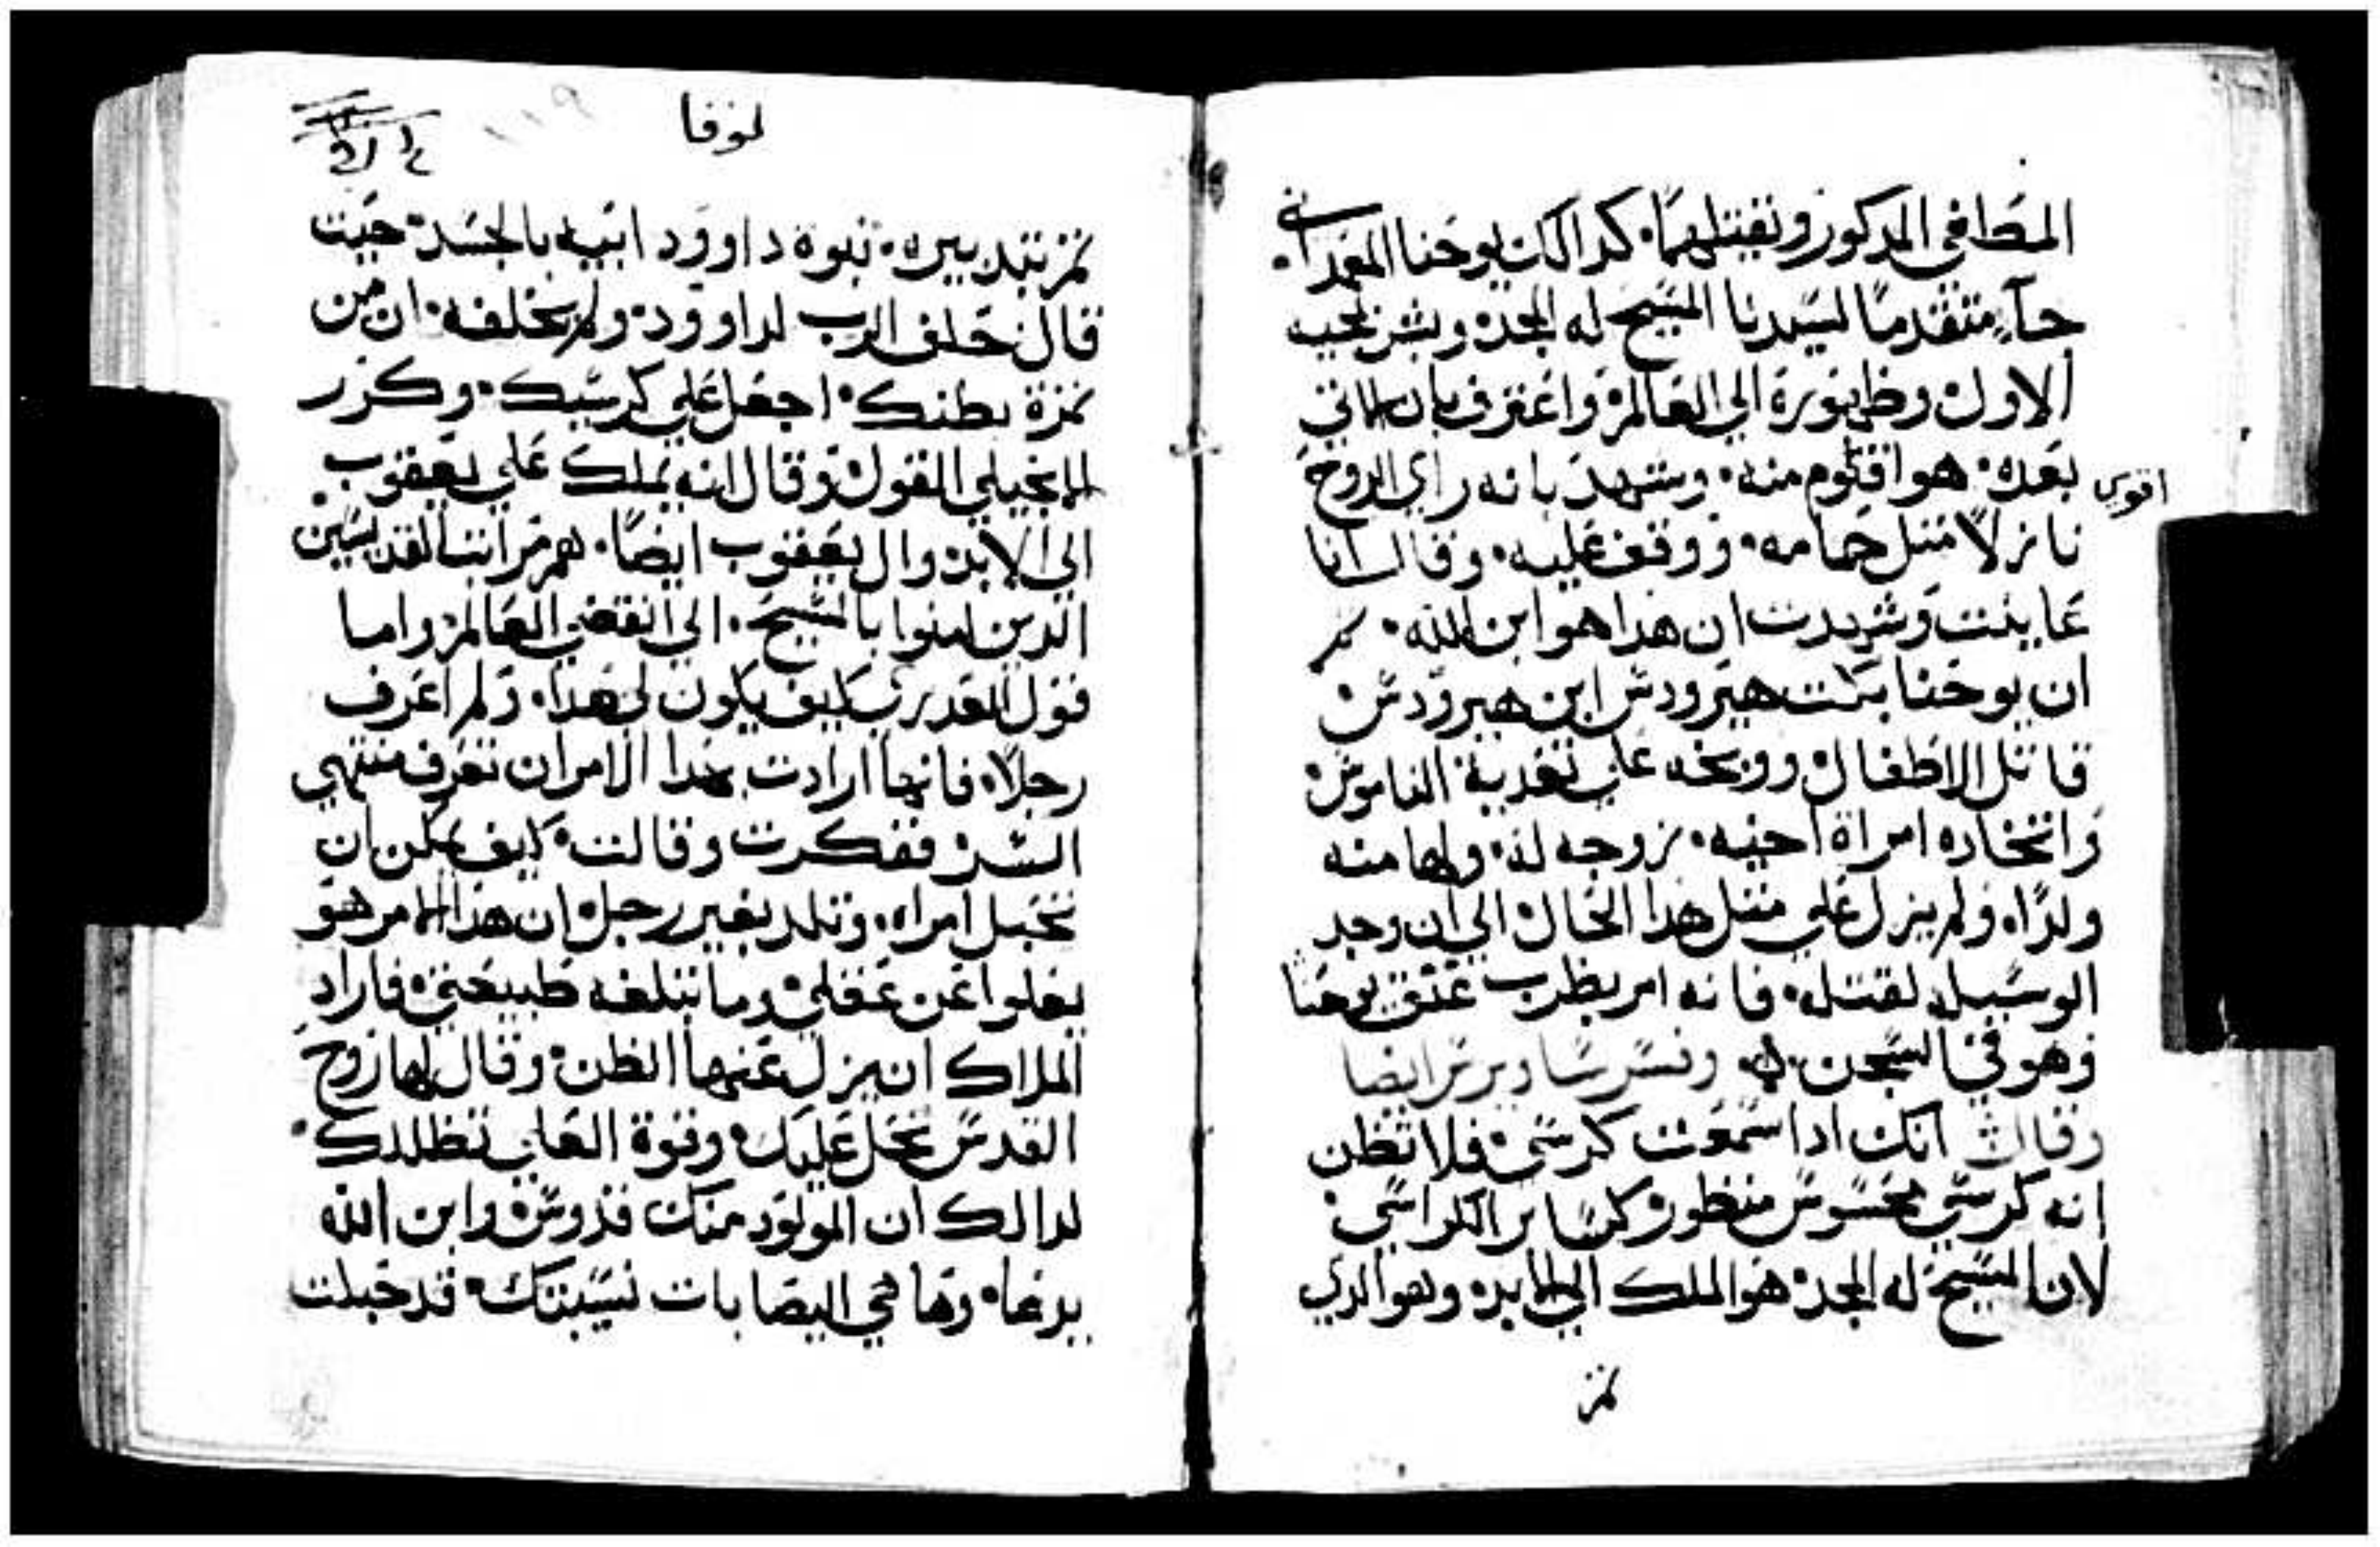 المطافي المدكور ونقتلهما. كدالك يوحنا المعمداني
جآء متقدمًا لسيدنا المسيح له المجد. وبشر بمجيه
الاول. وظهوره الي العالم. واعترف بان الاتي
بعده. هو اقوم منه. وشهد بانه راي الروح
اقوي
نازلًا متل حمامه. ووقف عليه. وقال انا
عاينت وشهدت ان هدا هو ابن الله. تم
ان يوحنا بكت هيرودس ابن هيرودس
قاتل الاطفال. ووبخه علي تعدية الناموس
واتخاده امراة اخيه. زوجه له. ولها منه
ولدًا. ولم يزل علي متل هدا الحال الي ان وجد
الوسيله لقتله. فانه امر بضرب عنق يوحنا
وهو في السجن. وفسر ساويرس ايضا
وقال انك ادا سمعت كرسي. فلا تظن
انه كرسي محسوس منظور. كساير الكراسي.
لان المسيح له المجد. هو الملك الي الابد. وهو الدي
تمز
لوقا
١١٩
تمز بتدبيره. نبوة داوود ابيه بالجسد. حيت
قال حلف الرب لداوود. ولم يخلفه. ان من
تمرة بطنك. اجعل علي كرسيك. وكرر
الانجيلي القول. وقال انه يملك علي يعقوب.
الي الابد. وال يعقوب ايضًا. هم مراتب القديسين
الدين امنوا بالمسيح. الي انقضي العالم. واما
قول العدري كيف يكون لي هدا. ولم اعرف
رجلًا. فانها ارادت بهدا الامر ان تعرف منتهي
السر. ففكرت وقالت. كيف يمكن ان
تحبل امراه. وتلد بغير رجل. ان هدا الامر هو
يعلوا عن عقلي. وما تبلغه طبيعتي. فاراد
الملاك ان يزل عنها الظن. وقال لها روح
القدس تحل عليك. وقوة العلي تظللك.
لدالك ان المولود منك قدوس. وابن الله
يدعا. وها هي اليصابات نسيبتك. قد حبلت